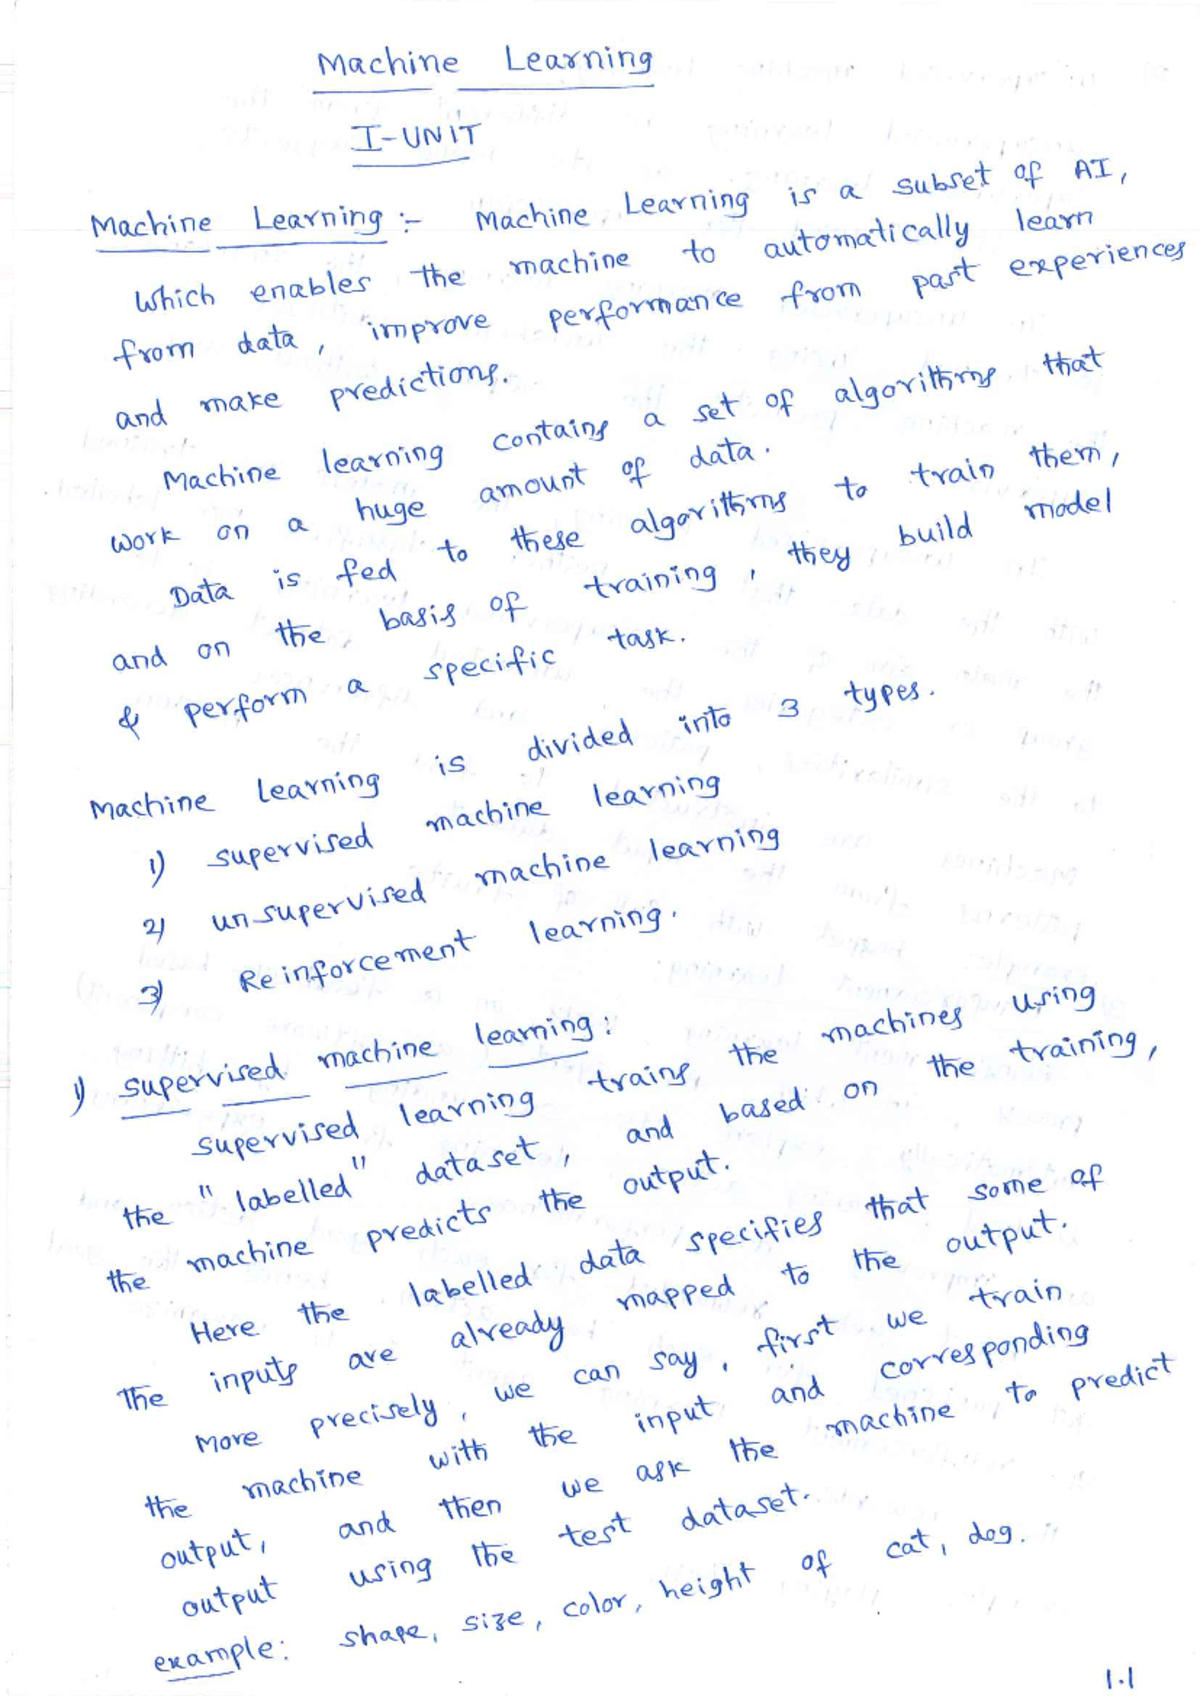 Machine Learning
I-UNIT
Machine Learning :- Machine Learning is a subset of AI,
which enables the machine to automatically learn
from data, improve performance from past experiences
and make predictions.
Machine learning contains a set of algorithms that
work on a huge amount of data.
Data is fed to these algorithms to train them,
and on the basis of training, they build model
& perform a specific task.
Machine Learning is divided into 3 types.
1) supervised machine learning
2) unsupervised machine learning
3) Reinforcement learning.
1) supervised machine learning:
supervised learning trains the machines using
the "labelled" dataset, and based on the training,
the machine predicts the output.
Here the labelled data specifies that some of
the inputs are already mapped to the output.
More precisely, we can say, first we train
the machine with the input and corresponding
output, and then we ask the machine to predict
output using the test dataset.
example: shape, size, color, height of cat, dog.
1.1